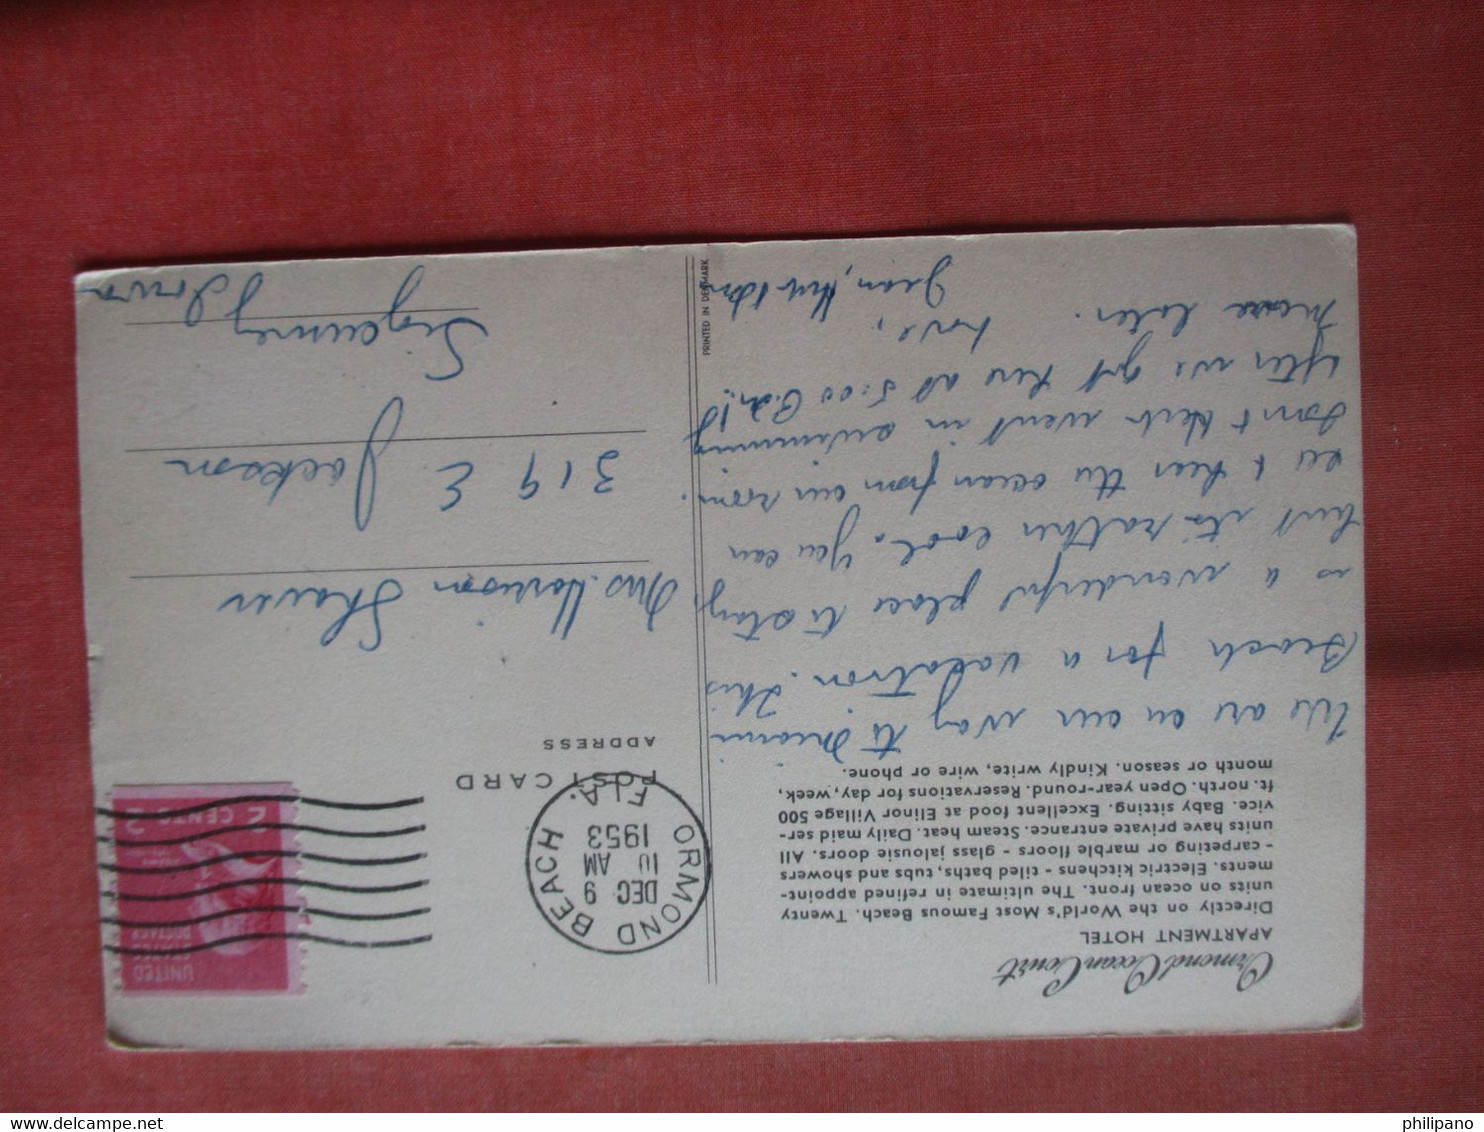 Ormond Ocean Court
APARTMENT HOTEL
Directly on the World's Most Famous Beach. Twenty
units on ocean front. The ultimate in refined appoint-
ments. Electric kitchens - tiled baths, tubs and showers
- carpeting or marble floors - glass jalousie doors. All
units have private entrance. Steam heat. Daily maid ser-
vice. Baby sitting. Excellent food at Elinor Village 500
ft. north. Open year-round. Reservations for day, week,
month or season. Kindly write, wire or phone.
We are on our way to Miami
Beach for a vacation. This
is a wonderful place to stay,
but it's rather cool. You can
hear the ocean from our room.
went in swimming
after we got here at 5:00
more later.
Love,
Jean,
PRINTED IN DENMARK
POST CARD
ADDRESS
ORMOND BEACH
DEC 9
10 AM
1953
FLA.
UNITED
STATES
POSTAGE
2 CENTS 2
Mrs. Harrison Shaver
319 E Jackson
Sigourney
Iowa
philipano